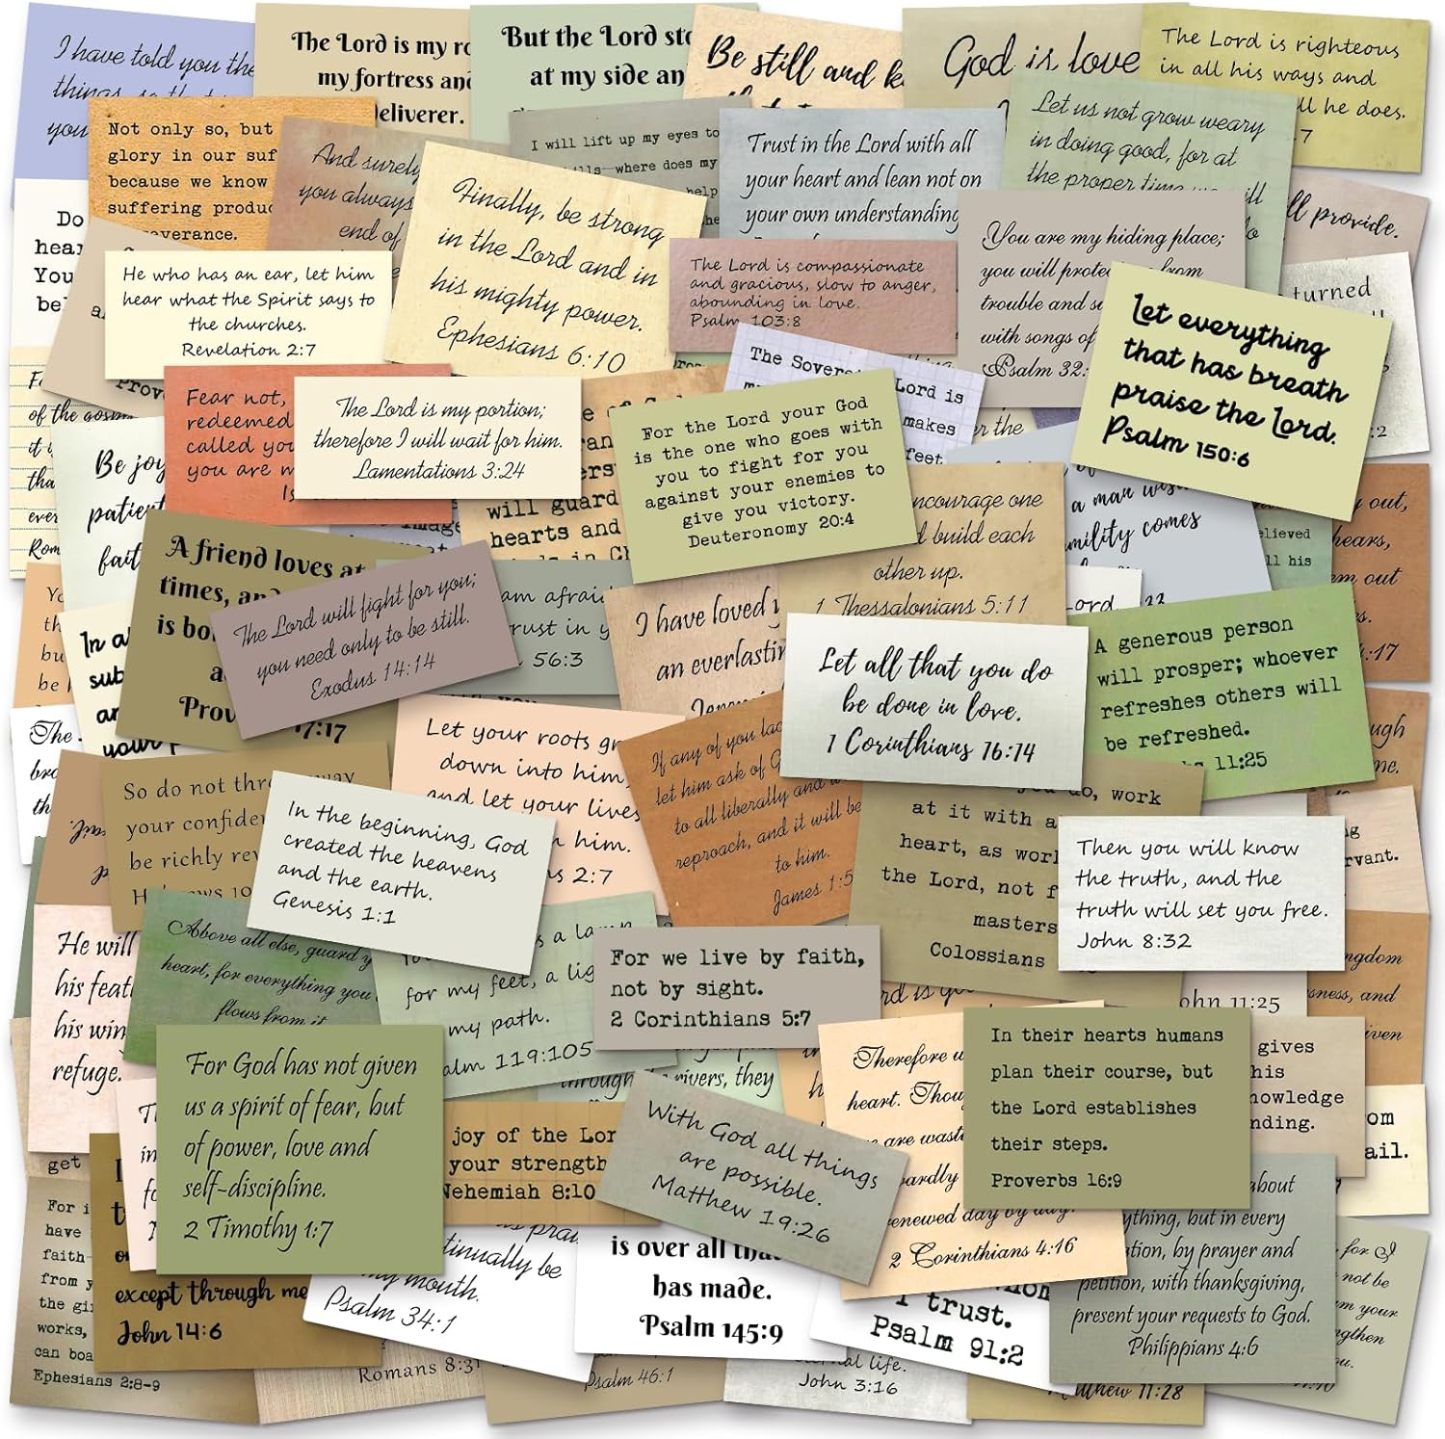 I have told you the
things, so that
you
The Lord is my ro
my fortress and
deliverer.
But the Lord sto
at my side an
Be still and k
God is love
The Lord is righteous
in all his ways and
ll he does.
7
Not only so, but
glory in our suf
because we know
suffering produc
verance.
And surely
you always
end of
Finally, be strong
in the Lord and in
his mighty power.
Ephesians 6:10
I will lift up my eyes to
lls—where does my
help
he
Trust in the Lord with all
your heart and lean not on
your own understanding
Let us not grow weary
in doing good, for at
the proper time we ill
ll provide.
Do
hear
You
be
He who has an ear, let him
hear what the Spirit says to
the churches.
Revelation 2:7
Prov
The Lord is compassionate
and gracious, slow to anger,
abounding in love.
Psalm 103:8
You are my hiding place;
you will protec from
trouble and su
with songs of
Psalm 32:
turned
:2
Let everything
that has breath
praise the Lord.
Psalm 150:6
of the gosp
it i
tha
ever
Rom
Be joy
patien
fait
Fear not,
redeemed
called you
you are m
Is
The Lord is my portion;
therefore I will wait for him.
Lamentations 3:24
e of G
will guard
hearts and
ds in Ch
image
The Sovere Lord is
makes
feet
For the Lord your God
is the one who goes with
you to fight for you
against your enemies to
give you victory.
Deuteronomy 20:4
er the
ncourage one
d build each
other up.
1 Thessalonians 5:11
a man wis
mility comes
elieved
ll his
out,
hears,
em out
s.
4:17
A friend loves at
times, and
is bo
a
Prov 17:17
The Lord will fight for you;
you need only to be still.
Exodus 14:14
am afrai
rust in y
56:3
I have loved y
an everlastin
Jeremi
ord
22
Let all that you do
be done in love.
1 Corinthians 16:14
A generous person
will prosper; whoever
refreshes others will
be refreshed.
s 11:25
Yo
th
bu
be
In a
sub
an
your
The
bro
th
So do not thr way
your confide
be richly rew
Hebrews 10
In the beginning, God
created the heavens
and the earth.
Genesis 1:1
Let your roots gr
down into him,
and let your lives
n him.
s 2:7
If any of you lac
let him ask of G
to all liberally and w
reproach, and it will be
to him.
James 1:5
you do, work
at it with a
heart, as work
the Lord, not f
masters
Colossians
Then you will know
the truth, and the
truth will set you free.
John 8:32
ugh
me.
rvant.
He will
his feat
his win
refuge.
Above all else, guard y
heart, for everything you
flows from it
s a lam
for my feet, a lig
my path.
alm 119:105
For we live by faith,
not by sight.
2 Corinthians 5:7
rd is g
through rivers, they
ohn 11:25
ngdom
sness, and
iven
For God has not given
us a spirit of fear, but
of power, love and
self-discipline.
2 Timothy 1:7
joy of the Lor
your strength
Nehemiah 8:10
With God all things
are possible.
Matthew 19:26
Therefore w
heart. Thou
are wasti
ardly
enewed day by day.
2 Corinthians 4:16
In their hearts humans
plan their course, but
the Lord establishes
their steps.
Proverbs 16:9
gives
his
nowledge
nding.
om
ail.
get
For i
have
faith-
from y
the gi
works,
can boa
Ephesians 2:8-9
except through me
John 14:6
s prai
tinually be
my mouth.
Psalm 34:1
Romans 8:31
is over all tha
has made.
Psalm 145:9
Psalm 46:1
I trust.
Psalm 91:2
al life.
John 3:16
about
ything, but in every
ation, by prayer and
petition, with thanksgiving,
present your requests to God.
Philippians 4:6
tthew 11:28
for I
not be
m your
ngthen
ou.